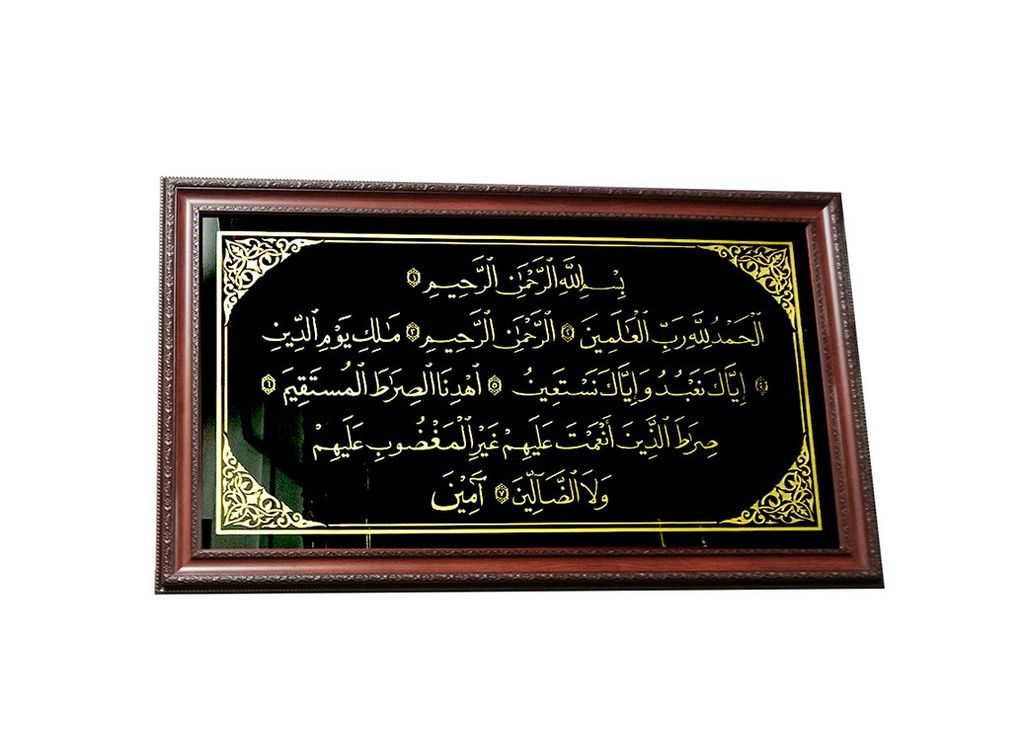 بِسْمِ اللَّهِ الرَّحْمَٰنِ الرَّحِيمِ ۝١
الْحَمْدُ لِلَّهِ رَبِّ الْعَالَمِينَ ۝ الرَّحْمَٰنِ الرَّحِيمِ ۝ مَالِكِ يَوْمِ الدِّينِ
۝٤ إِيَّاكَ نَعْبُدُ وَإِيَّاكَ نَسْتَعِينُ ۝٥ اهْدِنَا الصِّرَاطَ الْمُسْتَقِيمَ ۝٦
صِرَاطَ الَّذِينَ أَنْعَمْتَ عَلَيْهِمْ غَيْرِ الْمَغْضُوبِ عَلَيْهِمْ
وَلَا الضَّالِّينَ ۝٧ آمِيْنَ